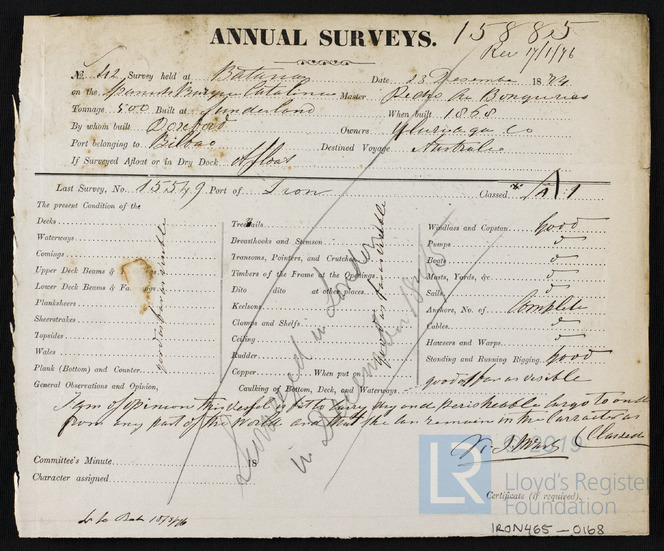 ANNUAL SURVEYS. 15885
Rec 17/1/76
No. 42 Survey held at Batavia Date 13 December 1874
on the Spanish Barque Catalina Master Pedro
Tonnage 500 Built at Sunderland When built 1868
By whom built Doxford Owners & Co
Port belonging to Bilbao Destined Voyage Australia
If Surveyed Afloat or in Dry Dock afloat
Last Survey, No. 15549 Port of Iron Classed A 1
The present Condition of the
Decks
Waterways
Comings
Upper Deck Beams &
Lower Deck Beams & Fa ngs
Planksheers
Sheerstrakes
Topsides
Wales
Plank (Bottom) and Counter
good as far as visible
Treenails
Breasthooks and Stemson
Transoms, Pointers, and Crutches
Timbers of the Frame at the Openings
Ditto ditto at other places
Keelsons
Clamps and Shelfs
Ceiling
Rudder
Copper When put on
Caulking of Bottom, Deck, and Waterways good as far as visible
good as far as visible
Windlass and Capstan good
Pumps do
Boats do
Masts, Yards, &c do
Sails do
Anchors, No. of Complete
Cables do
Hawsers and Warps do
Standing and Running Rigging good
General Observations and Opinion,
I am of opinion this vessel is fit to carry dry and perishable cargo to and
from any part of the world and that she can remain in the character as
Classed
Surveyed in London
in December 1875
Committee's Minute 18
Character assigned
Certificate (if required)
2019
LR Lloyd's Register
Foundation
IRON465-0168